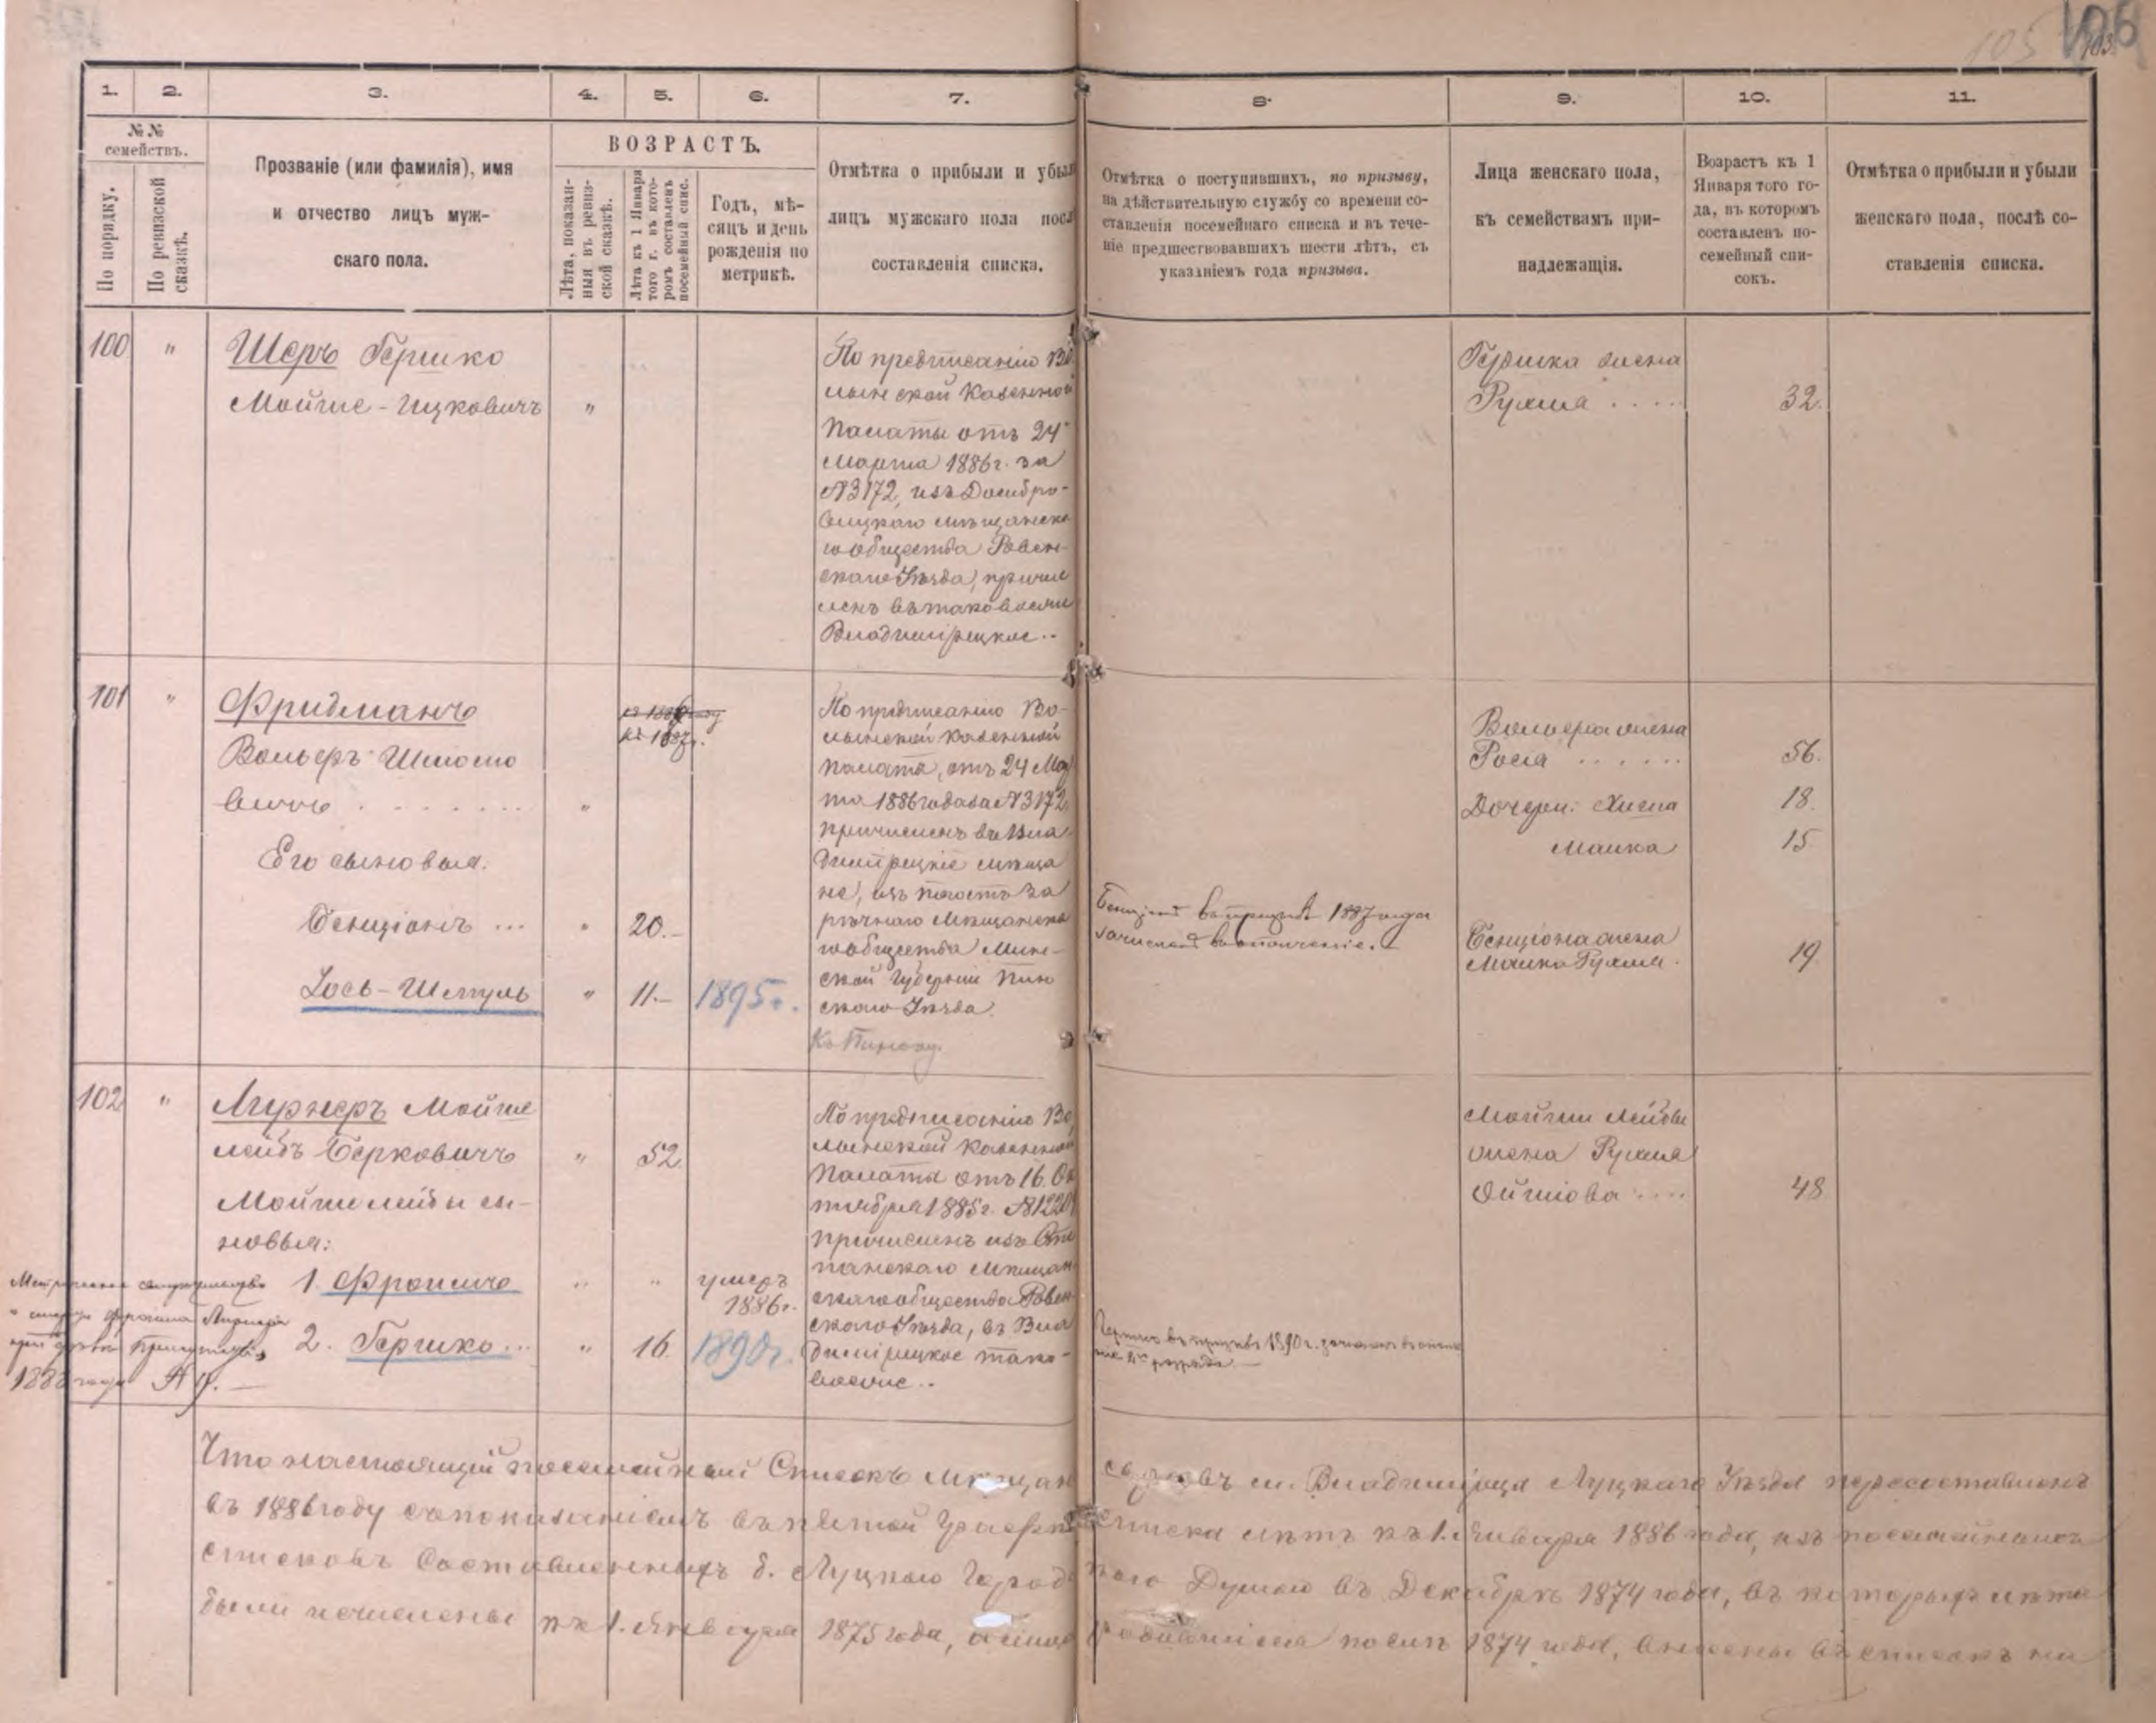 105 106
103.
1. 2. 3. 4. 5. 6. 7. 8. 9. 10. 11.
№№ семействъ.
По порядку.
По ревизской сказкѣ.
Прозваніе (или фамилія), имя
и отчество лицъ муж-
скаго пола.
ВОЗРАСТЪ.
Лѣта, показан-
ныя въ ревиз-
ской сказкѣ.
Лѣта къ 1 Января
того г. въ кото-
ромъ составленъ
посемейный спис.
Годъ, мѣ-
сяцъ и день
рожденія по
метрикѣ.
Отмѣтка о прибыли и убыл
лицъ мужскаго пола посл
составленія списка.
Отмѣтка о поступившихъ, по призыву,
на дѣйствительную службу со времени со-
ставленія посемейнаго списка и въ тече-
ніе предшествовавшихъ шести лѣтъ, съ
указаніемъ года призыва.
Лица женскаго пола,
къ семействамъ при-
надлежащія.
Возрастъ къ 1
Января того го-
да, въ которомъ
составленъ по-
семейный спи-
сокъ.
Отмѣтка о прибыли и убыли
женскаго пола, послѣ со-
ставленія списка.
100 "
Шеръ Гершко
Мойше-Ицковичъ "
По предписанію Во
лынской Казенной
Палаты отъ 24
Марта 1886 г. за
№ 3172, изъ Домбро-
вицкаго мѣщанска
го общества Ровен-
скаго Уѣзда, причис
ленъ въ таковыеже
Владимірецкіе..
Гершка жена
Рухля .... 32.
101 "
Фридманъ
Вольфъ Шлiомо
вичъ ........ "
къ 1887 г.
Его сыновья.
Бенціонъ ... " 20.-
Іось-Шмуль " 11.- 1895 г.
По предписанію Во-
лынской Казенной
Палаты, отъ 24 Мар
та 1886 года за № 3172,
причисленъ въ Вла
димірецкіе мѣща
не, изъ Погостъ За
рѣчнаго Мѣщанска
го общества Мин-
ской Губерніи Пин
скаго Уѣзда.
Бенціонъ въ призывѣ 1887 года
зачисленъ въ ополченіе.
Вольфа жена
Рося ...... 56.
Дочери: Хигна 18.
Малка 15
Бенціона жена
Малка Рухля. 19
102 "
Лирнеръ Мойше
лейбъ Берковичъ " 52.
Мойше лейбы сы-
новья:
1. Фроимъ " " умеръ
1886 г.
2. Гершко... " 16. 1890 г.
Метрическое свидѣтельство
о смерти Фроима Лирнера
1888 года
По предписанію Во
лынской Казенной
Палаты отъ 16 Ок
тября 1885 г.
причисленъ изъ Сте
панскаго Мѣщан
скаго общества Ровен
скаго Уѣзда, въ Вла
димірецкое тако-
вое же..
Гершко въ призывѣ 1890 г. зачисленъ въ ополч
Мойши Лейбы
жена Рухля
Ойшiова .... 48
Что настоящій посемейный Списокъ Мѣщан м. Владимірца Луцкаго Уѣзда пересоставленъ
въ 1886 году съ показаніемъ въ пятой графѣ списка лѣтъ къ 1. Января 1886 года, изъ посемейныхъ
списковъ составленныхъ б. Луцкою Город кою Думою въ Декабрѣ 1874 года, въ которыхъ лѣта
были исчислены къ 1. Января 1875 года, а лица родившіеся послѣ 1874 года, внесены въ списокъ на